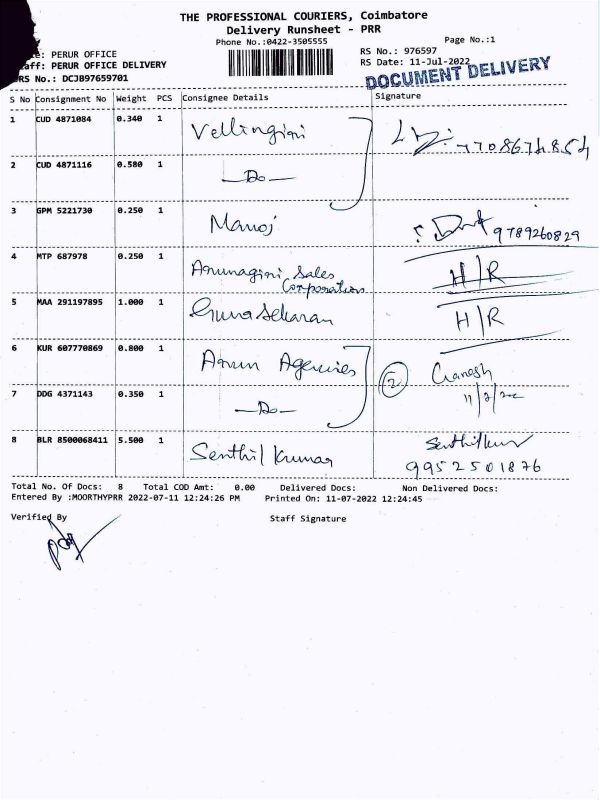 THE PROFESSIONAL COURIERS, Coimbatore
Delivery Runsheet - PRR
Phone No.:0422-3505555
Page No.:1
: PERUR OFFICE
RS No.: 976597
aff: PERUR OFFICE DELIVERY
RS Date: 11-Jul-2022
RS No.: DCJ897659701
DOCUMENT DELIVERY
S No Consignment No Weight PCS Consignee Details Signature
1 CUD 4871084 0.340 1 Vellingiri 7708674854
2 CUD 4871116 0.580 1 —Do—
3 GPM 5221730 0.250 1 Manoj 9789260829
4 MTP 687978 0.250 1 Arunagiri Sales Corporation H/R
5 MAA 291197895 1.000 1 Gunasekaran H/R
6 KUR 607770869 0.800 1 Arun Agencies 2 Ganesh
7 DDG 4371143 0.350 1 —Do—
8 BLR 8500068411 5.500 1 Senthil Kumar Senthilkumar
9952501876
Total No. Of Docs: 8 Total COD Amt: 0.00 Delivered Docs: Non Delivered Docs:
Entered By :MOORTHYPRR 2022-07-11 12:24:26 PM Printed On: 11-07-2022 12:24:45
Verified By Staff Signature